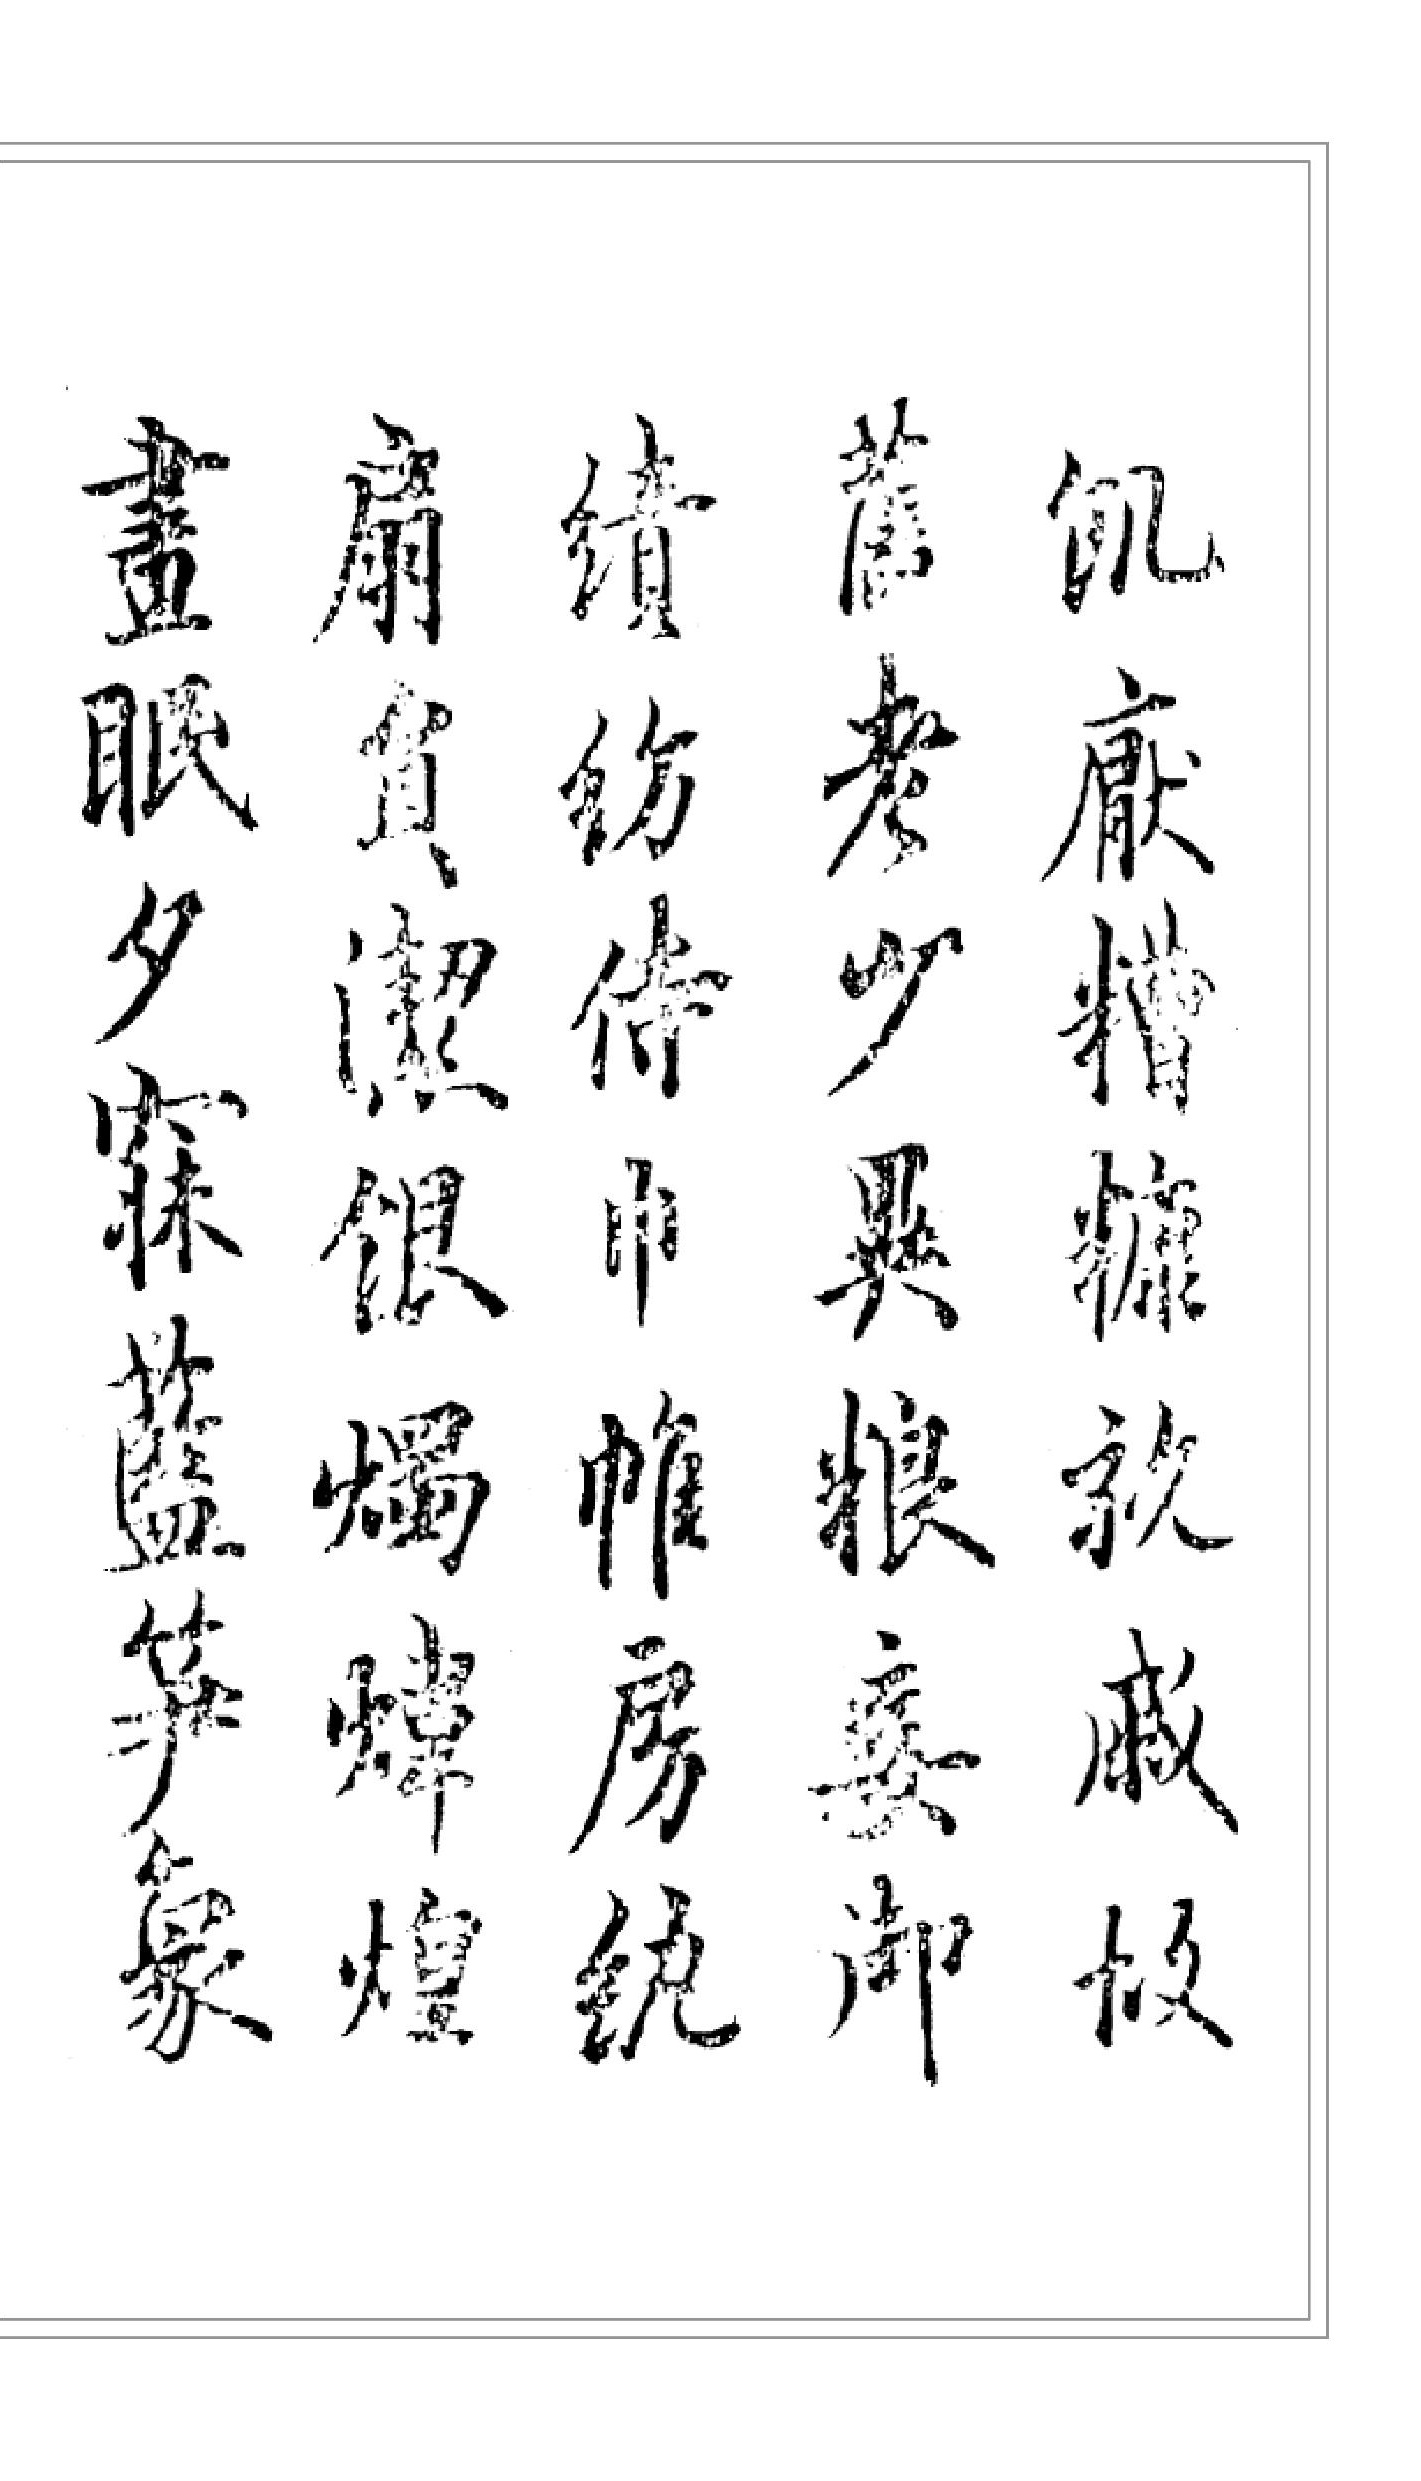 飢厭糟糠親戚故
舊老少異糧妾御
績紡侍巾帷房紈
扇員潔銀燭煒煌
晝眠夕寐藍笋象